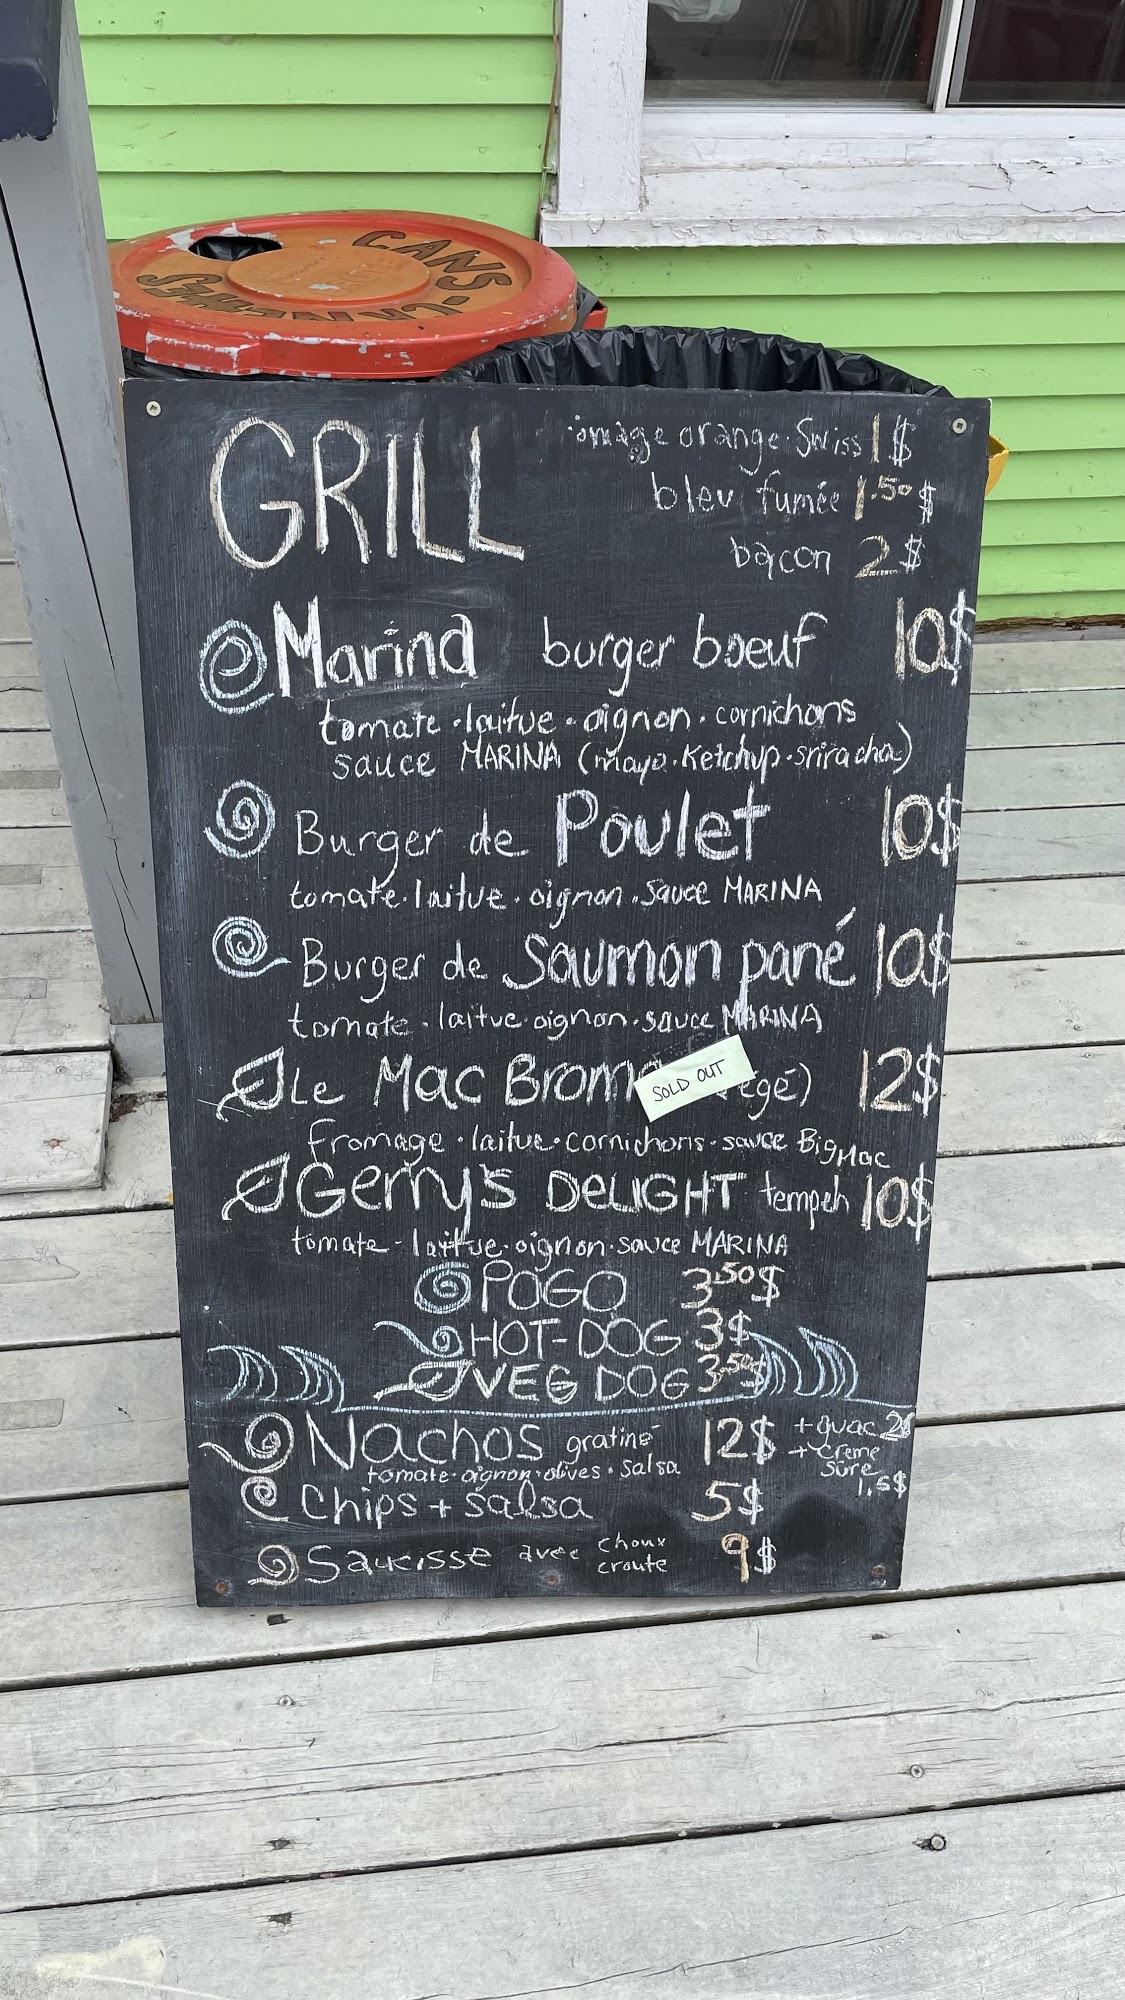 CANS.
GRILL
orange. Swiss 1$
bleu fumée 1.50$
bacon 2$
Marina burger boeuf 10$
tomate. laitue. oignon. cornichons
sauce MARINA (mayo. Ketchup. sriracha)
Burger de Poulet 10$
tomate. laitue. oignon. sauce MARINA
Burger de Saumon pané 10$
tomate. laitue. oignon. sauce MARINA
Le Mac 12$
SOLD OUT
fromage. laitue. cornichons. sauce Big Mac
Gerry's DELIGHT tempeh 10$
tomate - laitue. oignon. sauce MARINA
POGO 3.50$
HOT-DOG 3$
VEG DOG 3.50$
Nachos gratiné 12$ + guac 2$
tomate. oignon. olives. salsa + Creme
sure
1,5$
Chips + salsa 5$
Saucisse avec choux 9$
croute